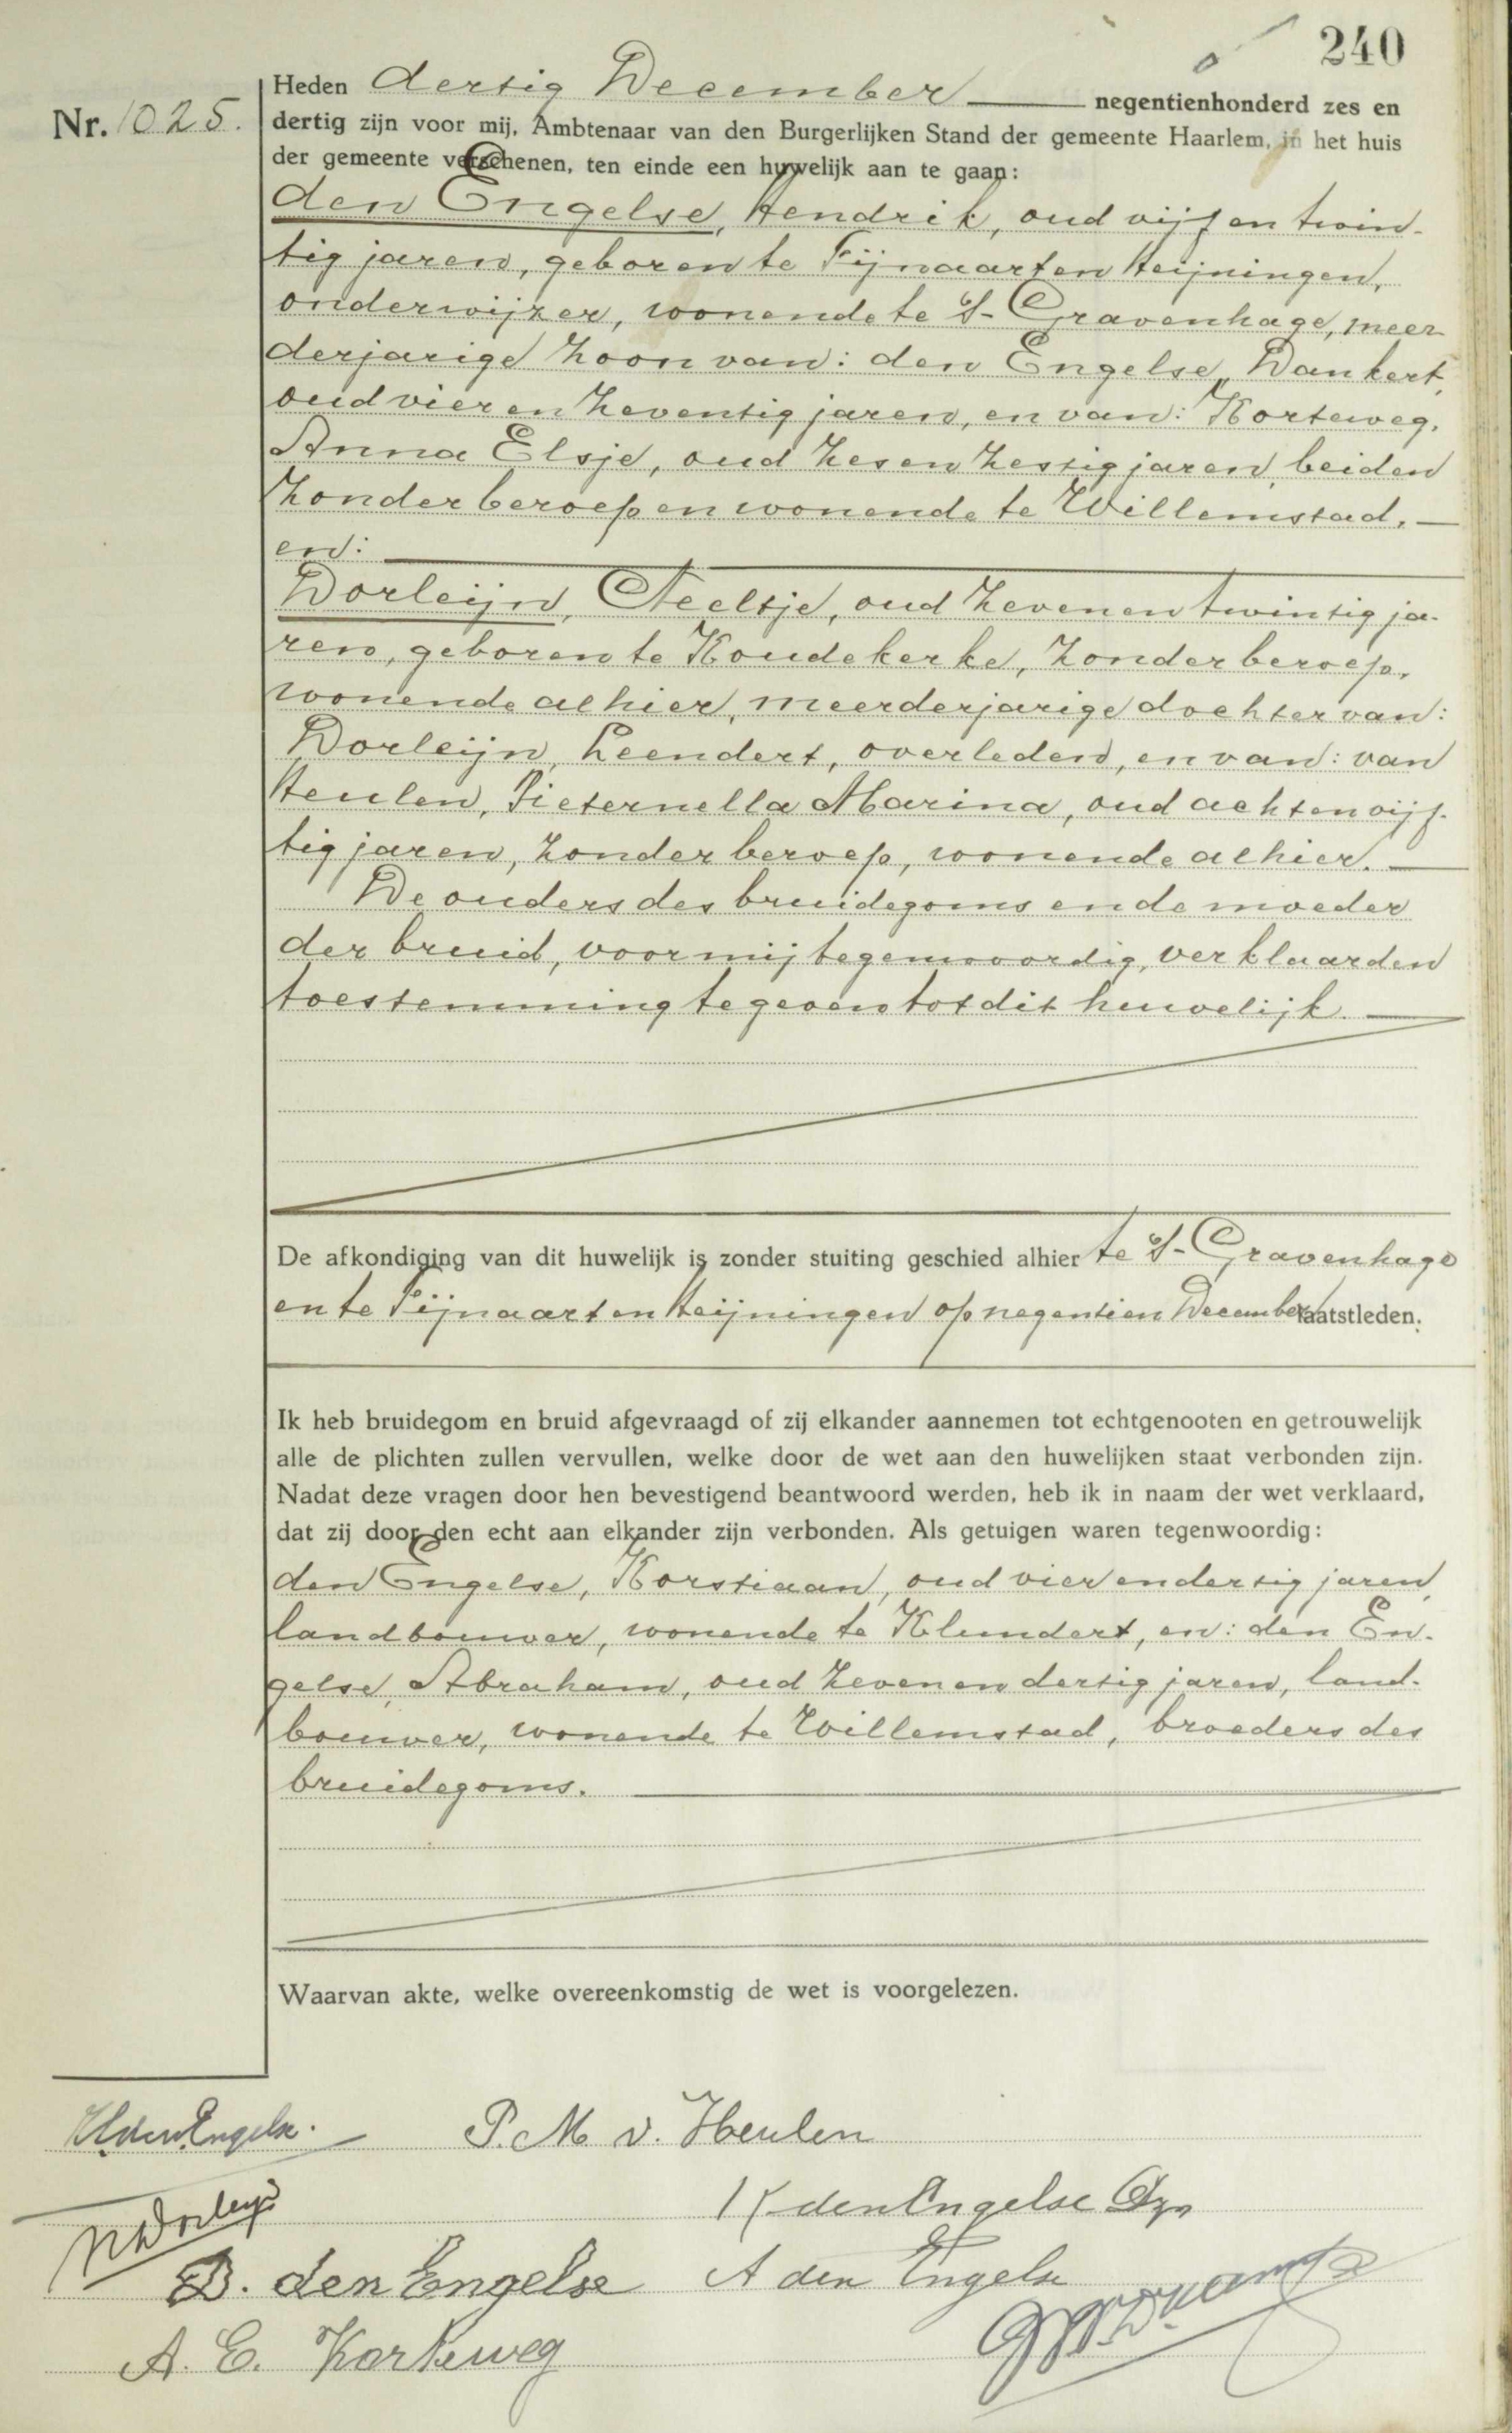 240
Nr. 1025.
Heden dertig December negentienhonderd zes en
dertig zijn voor mij, Ambtenaar van den Burgerlijken Stand der gemeente Haarlem, in het huis
der gemeente verschenen, ten einde een huwelijk aan te gaan:
den Engelse, Hendrik, oud vijf en twin-
tig jaren, geboren te Fijnaart en Heijningen,
onderwijzer, wonende te 's-Gravenhage, meer
derjarige zoon van: den Engelse, Dankert,
oud vier en zeventig jaren, en van: Korteweg,
Anna Elsje, oud zes en zestig jaren, beiden
zonder beroep en wonende te Willemstad.
en:
Dorleijn, Neeltje, oud zeven en twintig ja-
ren, geboren te Koudekerke, zonder beroep,
wonende alhier, meerderjarige dochter van:
Dorleijn, Leendert, overleden, en van: van
Heulen, Pieternella Marina, oud acht en vijf-
tig jaren, zonder beroep, wonende alhier.
De ouders des bruidegoms en de moeder
der bruid, voor mij tegenwoordig, verklaarden
toestemming te geven tot dit huwelijk.
De afkondiging van dit huwelijk is zonder stuiting geschied alhier te 's-Gravenhage
en te Fijnaart en Heijningen op negentien December laatstleden.
Ik heb bruidegom en bruid afgevraagd of zij elkander aannemen tot echtgenooten en getrouwelijk
alle de plichten zullen vervullen, welke door de wet aan den huwelijken staat verbonden zijn.
Nadat deze vragen door hen bevestigend beantwoord werden, heb ik in naam der wet verklaard,
dat zij door den echt aan elkander zijn verbonden. Als getuigen waren tegenwoordig:
den Engelse, Korstiaan, oud vier en dertig jaren,
landbouwer, wonende te Klundert, en: den En-
gelse, Abraham, oud zeven en dertig jaren, land-
bouwer, wonende te Willemstad, broeders des
bruidegoms.
Waarvan akte, welke overeenkomstig de wet is voorgelezen.
H den Engelse. P. M v. Heulen
N Dorleijn K den Engelse Dzn
D. den Engelse A den Engelse
A. E. Korteweg